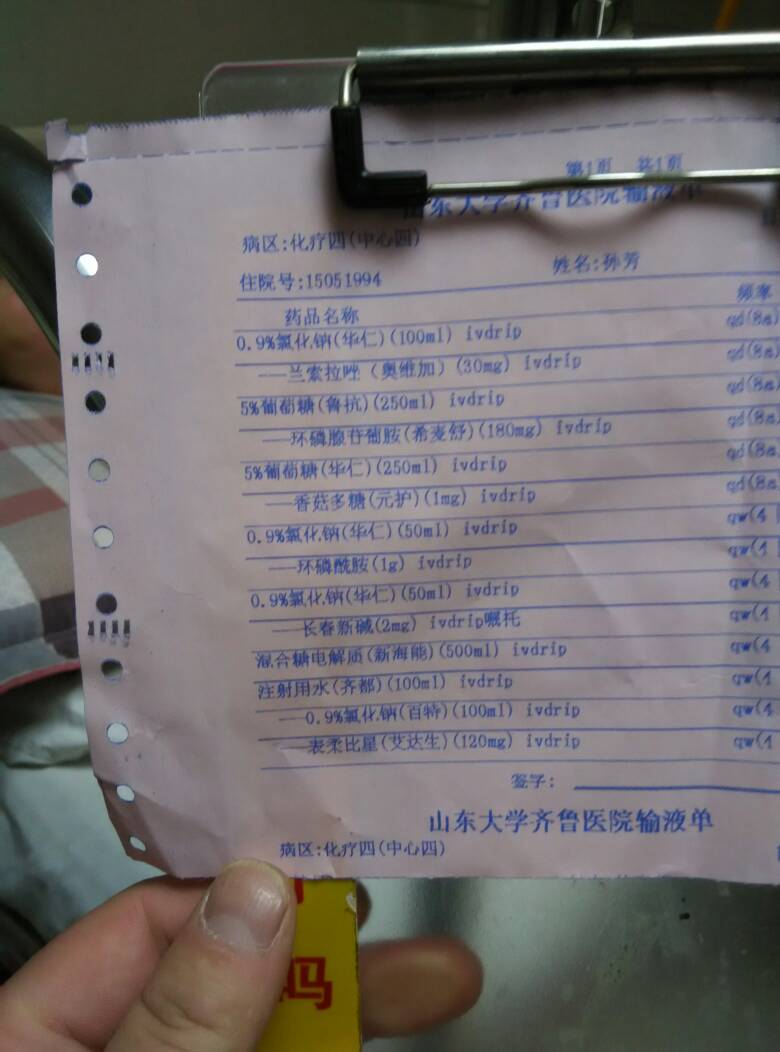 第1页 共1页
山东大学齐鲁医院输液单
病区:化疗四(中心四)
姓名:孙芳
住院号:15051994
药品名称 频率
0.9%氯化钠(华仁)(100ml) ivdrip qd(8a)
——兰索拉唑(奥维加)(30mg) ivdrip qd(8a)
5%葡萄糖(鲁抗)(250ml) ivdrip qd(8a)
——环磷腺苷葡胺(希麦舒)(180mg) ivdrip qd(8a)
5%葡萄糖(华仁)(250ml) ivdrip qd(8a)
——香菇多糖(元护)(1mg) ivdrip qd(8a)
0.9%氯化钠(华仁)(50ml) ivdrip qw(4
——环磷酰胺(1g) ivdrip qw(4
0.9%氯化钠(华仁)(50ml) ivdrip qw(4
——长春新碱(2mg) ivdrip嘱托 qw(4
混合糖电解质(新海能)(500ml) ivdrip qw(4
注射用水(齐都)(100ml) ivdrip qw(4
——0.9%氯化钠(百特)(100ml) ivdrip qw(4
——表柔比星(艾达生)(120mg) ivdrip qw(4
签字:
山东大学齐鲁医院输液单
病区:化疗四(中心四)
吗